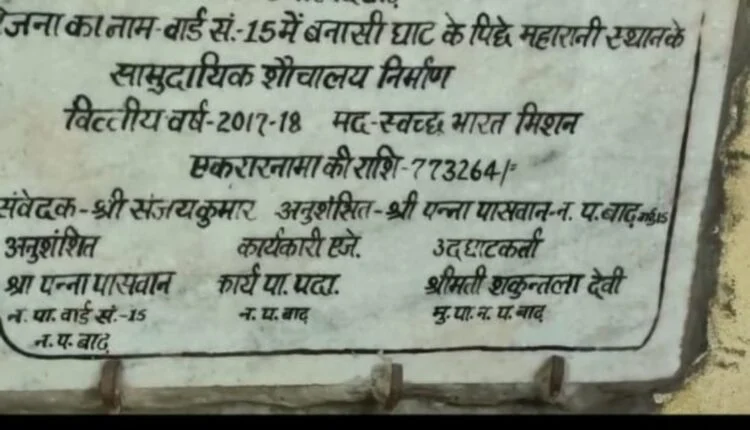 जना का नाम-वार्ड सं.-15 में बनासी घाट के पिछे महारानी स्थान के
सामुदायिक शौचालय निर्माण
वित्तीय वर्ष-2017-18 मद-स्वच्छ भारत मिशन
एकरारनामा की राशि-773264/=
संवेदक-श्री संजय कुमार अनुशंसित-श्री पन्ना पासवान-न. प. बाढ़ वार्ड 15
अनुशंशित कार्यकारी एजे. उदघाटकर्ता
श्री पन्ना पासवान कार्य पा. पदा. श्रीमती शकुन्तला देवी
न. पा. वार्ड सं.-15 न. प. बाढ़ मु. पा. न. प. बाढ़
न. प. बाढ़